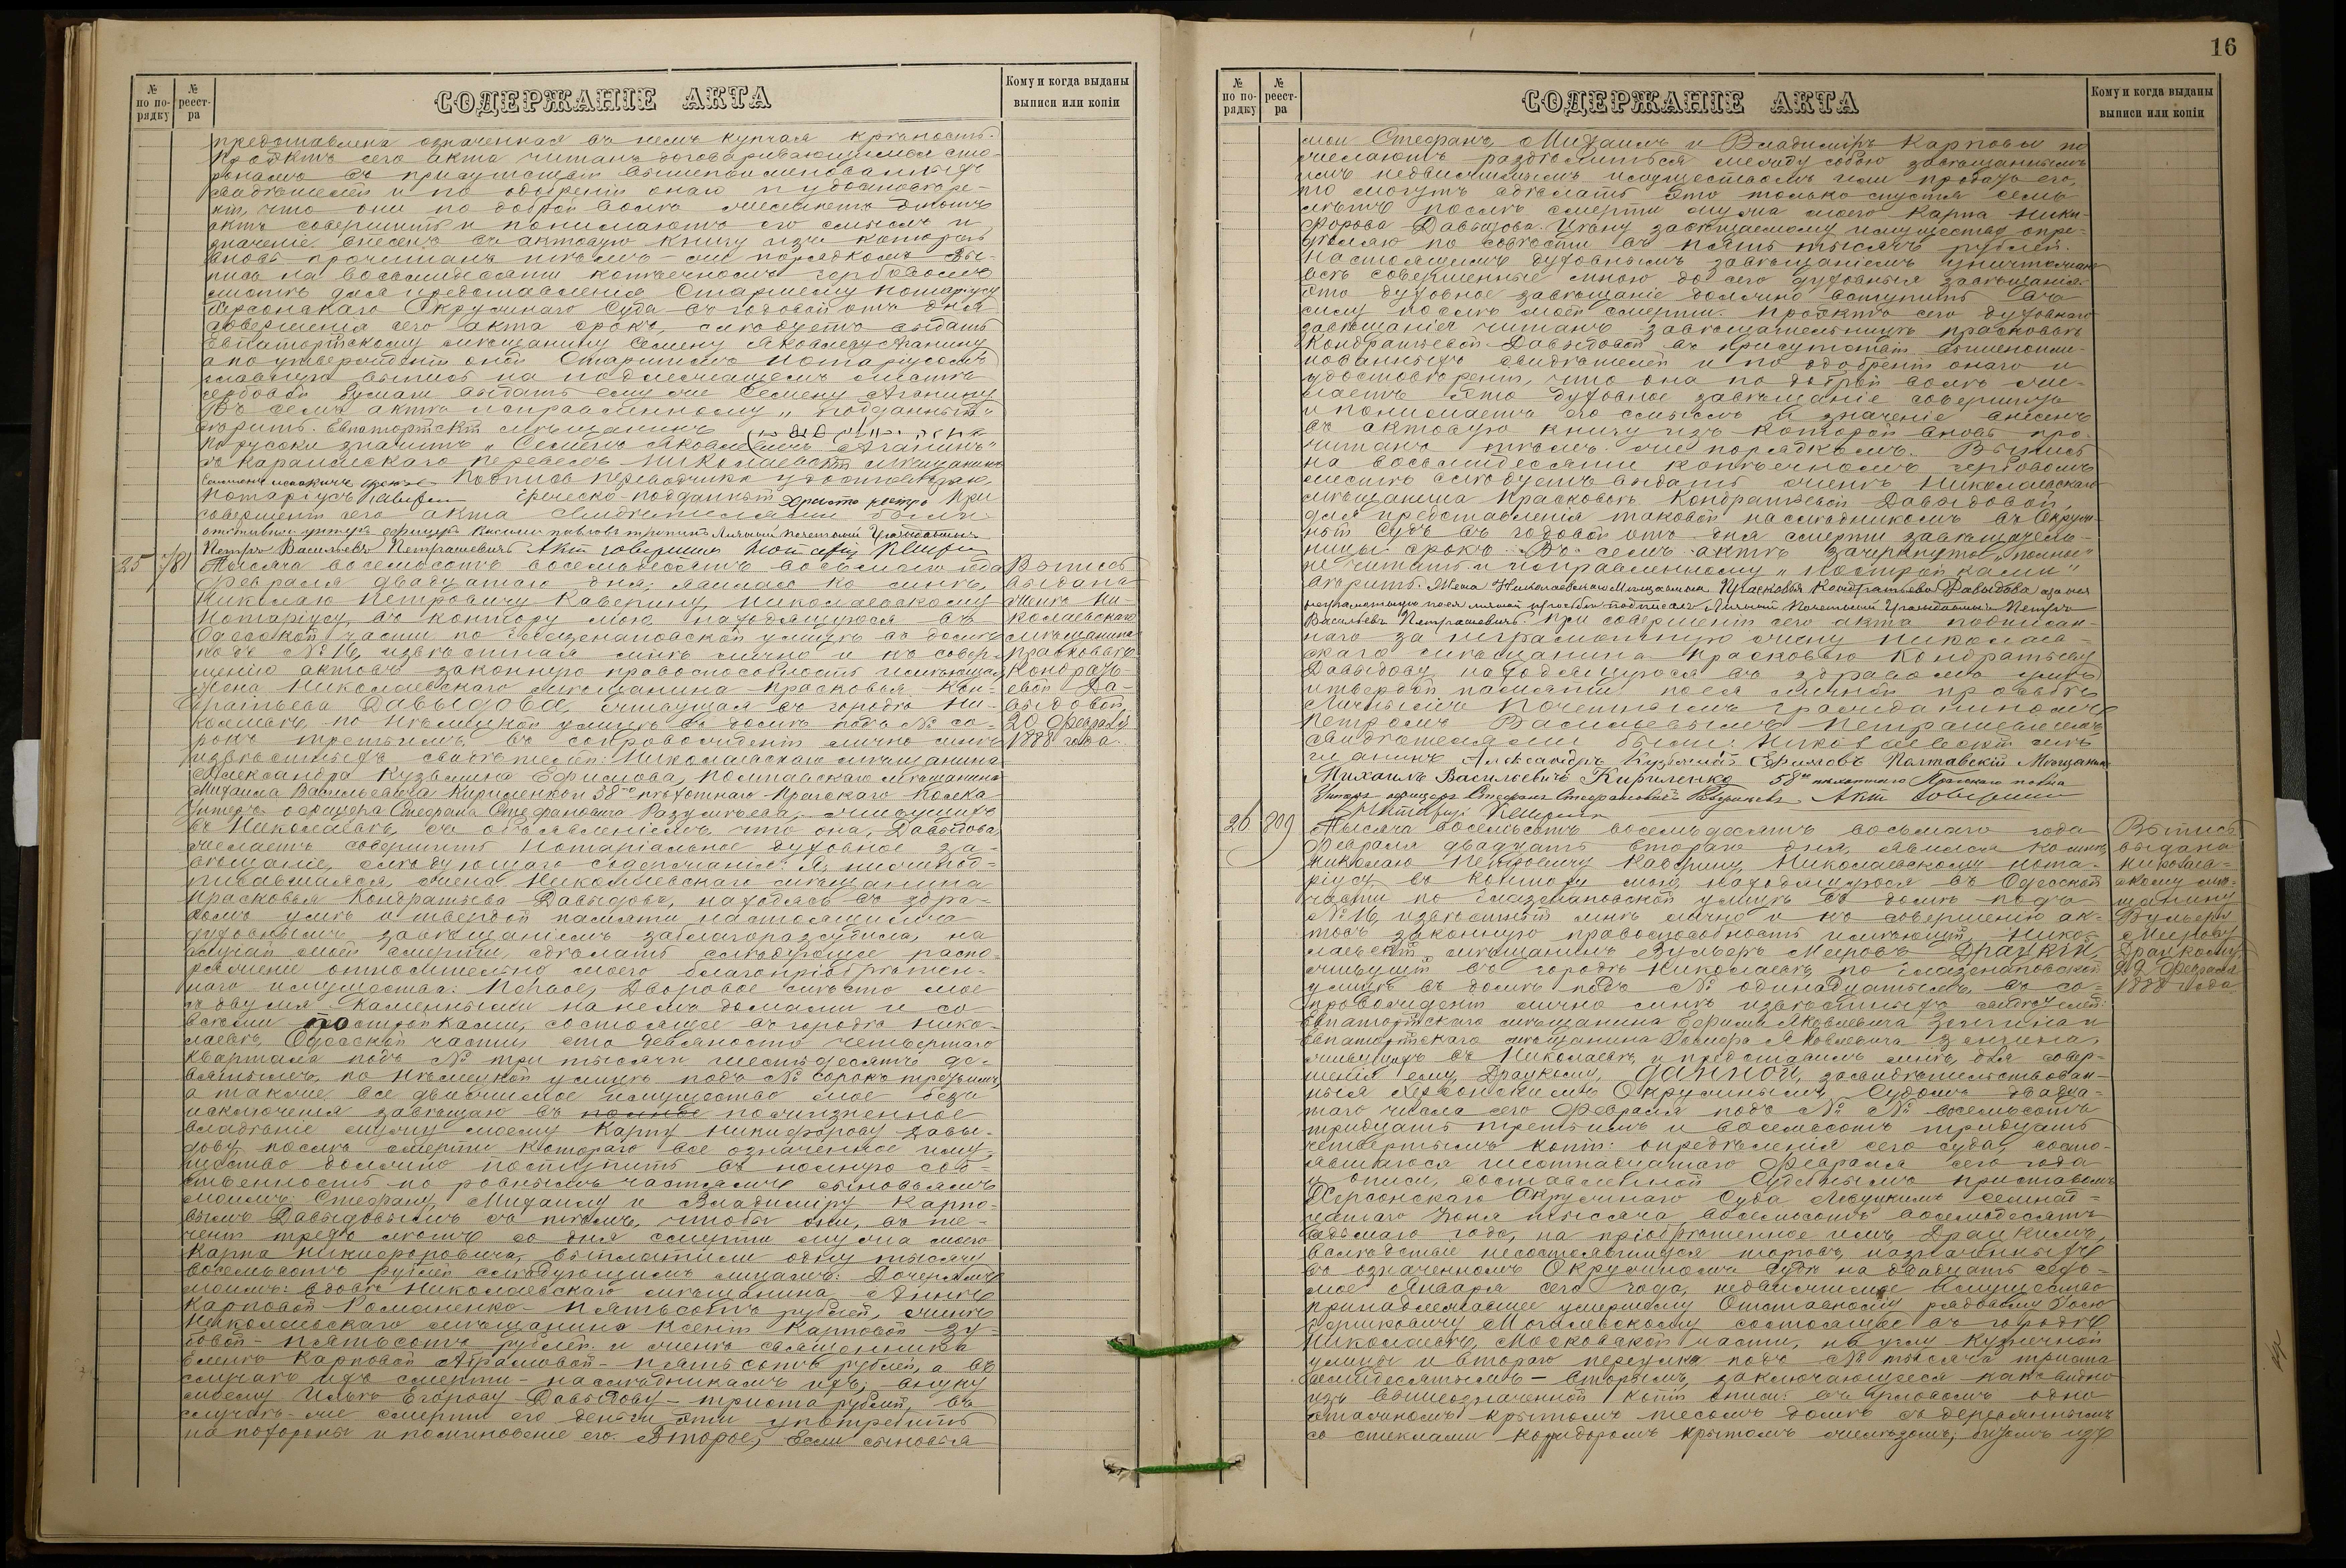 16
№ по порядку
№ реестра
СОДЕРЖАНІЕ АКТА
Кому и когда выданы выписи или копіи
представлена означенная въ немъ купчая крѣпость.
Проэктъ сего акта читанъ договаривающимся сто-
ронамъ въ присутствіи вышепоименованныхъ
свидѣтелей и по одобреніи онаго и удостовѣре-
ніи, что они по доброй волѣ желаютъ данный
актъ совершить и понимаютъ его смыслъ и
значеніе внесенъ въ актовую книгу изъ которой
вновь прочитанъ тѣмъ-же порядкомъ. Вы-
пись на восьмидесяти копѣечномъ гербовомъ
листѣ для представленія Старшему Нотаріусу
Херсонскаго Окружнаго Суда въ годовой отъ дня
совершенія сего акта срокъ, слѣдуетъ выдать
Евпаторійскому мѣщанину Семену Яковлеву Аганину
а по утвержденіи оной Старшимъ Нотаріусомъ
главную выпись на подлежащемъ листѣ
гербовой бумаги выдать ему же Семену Аганину
Въ семъ актѣ исправленному „подданный“
вѣрить. Евпаторійскій мѣщанинъ
по русски значитъ „Семенъ Яковлевичъ Аганинъ“
съ караимскаго перевелъ Николаевскій мѣщанинъ
Подпись переводчика удостовѣряю,
Нотаріусъ греческо-подданный Христо При
совершеніи сего акта свидѣтелями были:
Личный почетный Гражданинъ
Петръ Васильевъ Петрашевичъ Актъ совершилъ Нотаріусъ
25 781 Тысяча восемьсотъ восемьдесятъ восьмого года
Февраля двадцатаго дня, явилась ко мнѣ,
Николаю Петровичу Каверину, Николаевскому
Нотаріусу, въ контору мою находящуюся въ
Одесской части по Глазенаповской улицѣ въ домѣ
подъ № 16, извѣстная мнѣ лично и къ совер-
шенію актовъ законную правоспособность имѣющая
жена Николаевскаго мѣщанина Прасковья Кон-
дратьева Давыдова, живущая въ городѣ Ни-
колаевѣ, по Нѣмецкой улицѣ въ домѣ подъ № со-
рокъ третьимъ, въ сопровожденіи лично мнѣ
извѣстныхъ свидѣтелей: Николаевскаго мѣщанина
Александра Кузьмина Ефимова, Полтавскаго мѣщанина
Михаила Васильевича Кириленкои 58го пѣхотнаго Прагскаго полка
Унтеръ офицера Стефана Стефановича Разумѣева, живущихъ
въ Николаевѣ, съ объявленіемъ, что она, Давыдова,
желаетъ совершить нотаріальное духовное за-
вѣщаніе, слѣдующаго содержанія: Я, нижепод-
писавшаяся, жена Николаевскаго мѣщанина
Прасковья Кондратьева Давыдова, находясь въ здра-
вомъ умѣ и твердой памяти настоящимъ
духовнымъ завѣщаніемъ заблагоразсудила, на
случай моей смерти, сдѣлать слѣдующее распо-
ряженіе относительно моего благопріобрѣтен-
наго имущества: Первое, Дворовое мѣсто мое
съ двумя каменными на немъ домами и со
всѣми постройками, состоящее въ городѣ Нико-
лаевѣ, Одесской части, сто девяносто четвертаго
квартала подъ № три тысячи шестьдесятъ де-
вятымъ, по Нѣмецкой улицѣ подъ № сорокъ третьимъ,
а также все движимое имущество мое безъ
исключенія завѣщаю въ полное пожизненное
владѣніе мужу моему Карпу Никифорову Давы-
дову, послѣ смерти котораго все означенное иму-
щество должно поступить въ полную соб-
ственность по ровнымъ частямъ сыновьямъ
моимъ: Стефану, Михаилу и Владиміру Карпо-
вымъ Давыдовымъ съ тѣмъ, чтобы они, въ те-
ченіи трехъ лѣтъ со дня смерти мужа моего
Карпа Никифоровича, выплатили одну тысячу
восемьсотъ рублей слѣдующимъ лицамъ: Дочерямъ
моимъ: вдовѣ Николаевскаго мѣщанина Аннѣ
Карповой Романенко - пятьсотъ рублей, женѣ
Николаевскаго мѣщанина Ксеніи Карповой Зу-
бовой - пятьсотъ рублей и женѣ священника
Еленѣ Карповой Абрамовой - пятьсотъ рублей, а въ
случаѣ ихъ смерти - наслѣдникамъ ихъ; внуку
моему Ильѣ Егорову Давыдову - триста рублей, въ
случаѣ-же смерти его деньги эти употребить
на похороны и поминовеніе его. Второе, Если сыновья
Выпись
выдана
женѣ Ни-
колаевскаго
мѣщанина
Прасковьѣ
Кондрать-
евой Да-
выдовой
20 Февраля
1888 года.
№ по порядку
№ реестра
СОДЕРЖАНІЕ АКТА
Кому и когда выданы выписи или копіи
мои Стефанъ, Михаилъ и Владиміръ Карповы по
желаютъ раздѣлиться между собою завѣщаннымъ
имъ недвижимымъ имуществомъ или продать его,
то могутъ сдѣлать это только спустя семь
лѣтъ послѣ смерти мужа моего Карпа Ники-
форова Давыдова. Цѣну завѣщаемому имуществу опре-
дѣляю по совѣсти въ пять тысячъ рублей.
Настоящимъ духовнымъ завѣщаніемъ уничтожаю
всѣ совершенные мною до сего духовныя завѣщанія.
Это духовное завѣщаніе должно вступить въ
силу послѣ моей смерти. Проэктъ сего духовнаго
завѣщанія читанъ завѣщательницѣ Прасковьѣ
Кондратьевой Давыдовой въ присутствіи вышепоиме-
нованныхъ свидѣтелей и по одобреніи онаго и
удостовѣреніи, что она по доброй волѣ же-
лаетъ это духовное завѣщаніе совершить
и понимаетъ его смыслъ и значеніе внесенъ
въ актовую книгу изъ которой вновь про-
читанъ тѣмъ-же порядкомъ. Выпись
на восьмидесяти копѣечномъ гербовомъ
листѣ слѣдуетъ выдать женѣ Николаевскаго
мѣщанина Прасковьѣ Кондратьевой Давыдовой,
для представленія таковой наслѣдникомъ въ Окруж-
ный Судъ въ годовой отъ дня смерти завѣщатель-
ницы срокъ. Въ семъ актѣ зачеркнутое „полное“
не читать и исправленному „постройками“
вѣрить. Жена Николаевскаго Мѣщанина Прасковья Кондратьева Давыдова а за нея
неграмотную по ея личной просьбѣ подписалъ Личный Почетный Гражданинъ Петръ
Васильевъ Петрашевичъ. При совершеніи сего акта подписан-
наго за неграмотную жену Николаев-
скаго мѣщанина Прасковью Кондратьеву
Давыдову находящуюся въ здравомъ умѣ
и твердой памяти по ея личной просьбѣ
Личнымъ Почетнымъ Гражданиномъ
Петромъ Васильевымъ Петрашевичемъ
свидѣтелями были: Николаевскій мѣ-
щанинъ Александръ Кузьминъ Ефимовъ Полтавскій Мѣщанинъ
Михаилъ Васильевичъ Кириленко 58го пѣхотнаго Прагскаго полка
Унтеръ офицеръ Стефанъ Стефановичъ Актъ совершилъ
Нотаріусъ
26 809 Тысяча восемьсотъ восемьдесятъ восьмаго года
Февраля двадцать втораго дня, явился ко мнѣ,
Николаю Петровичу Каверину, Николаевскому Нота-
ріусу въ контору мою, находящуюся въ Одесской
части по Глазенаповской улицѣ въ домѣ подъ
№ 16, извѣстный мнѣ лично и къ совершенію ак-
товъ законную правоспособность имѣющій Нико-
лаевскій мѣщанинъ Зульверъ Меировъ Драцкій,
живущій въ городѣ Николаевѣ по Глазенаповской
улицѣ въ домѣ подъ № одинадцатымъ, въ со-
провожденіи лично мнѣ извѣстныхъ свидѣтелей:
Евпаторійскаго мѣщанина Ефима Яковлевича Зенгина и
Евпаторійскаго мѣщанина Яковлевича Зенгина,
живущихъ въ Николаевѣ, и представилъ мнѣ, для совер-
шенія ему, Драцкому, данной, засвидѣтельствован-
ныя Херсонскимъ Окружнымъ Судомъ двадца-
таго числа сего Февраля подъ № № восемьсотъ
тридцать третьимъ и восемьсотъ тридцать
четвертымъ копіи: опредѣленія сего суда, состо-
явшагося шестнадцатаго Февраля сего года
и описи, составленной Судебнымъ приставомъ
Херсонскаго Окружнаго Суда Левицкимъ семнад-
цатаго Іюня тысяча восемьсотъ восемьдесятъ
седьмаго года, на пріобрѣтенное имъ, Драцкимъ,
вслѣдствіе несостоявшихся торговъ, назначенныхъ
въ означенномъ Окружномъ Судѣ на двадцать седь-
мое Января сего года, недвижимое имущество
принадлежавшее умершему Отставному рядовому
Могилевскому состоящее въ городѣ
Николаевѣ, Московской части, на углу Кузнечной
улицы и втораго переулка подъ № тысяча триста
семидесятымъ - вторымъ, заключающееся какъ видно
изъ вышеозначенной копіи описи: въ угловомъ одно
этажномъ крытомъ тесомъ домѣ съ деревяннымъ
со стеклами коридоромъ крытомъ желѣзомъ,
Выпись
выдана
Николаев-
скому мѣ-
щанину
Зульверу
Меирову
Драцкому
22 Февраля
1888 года